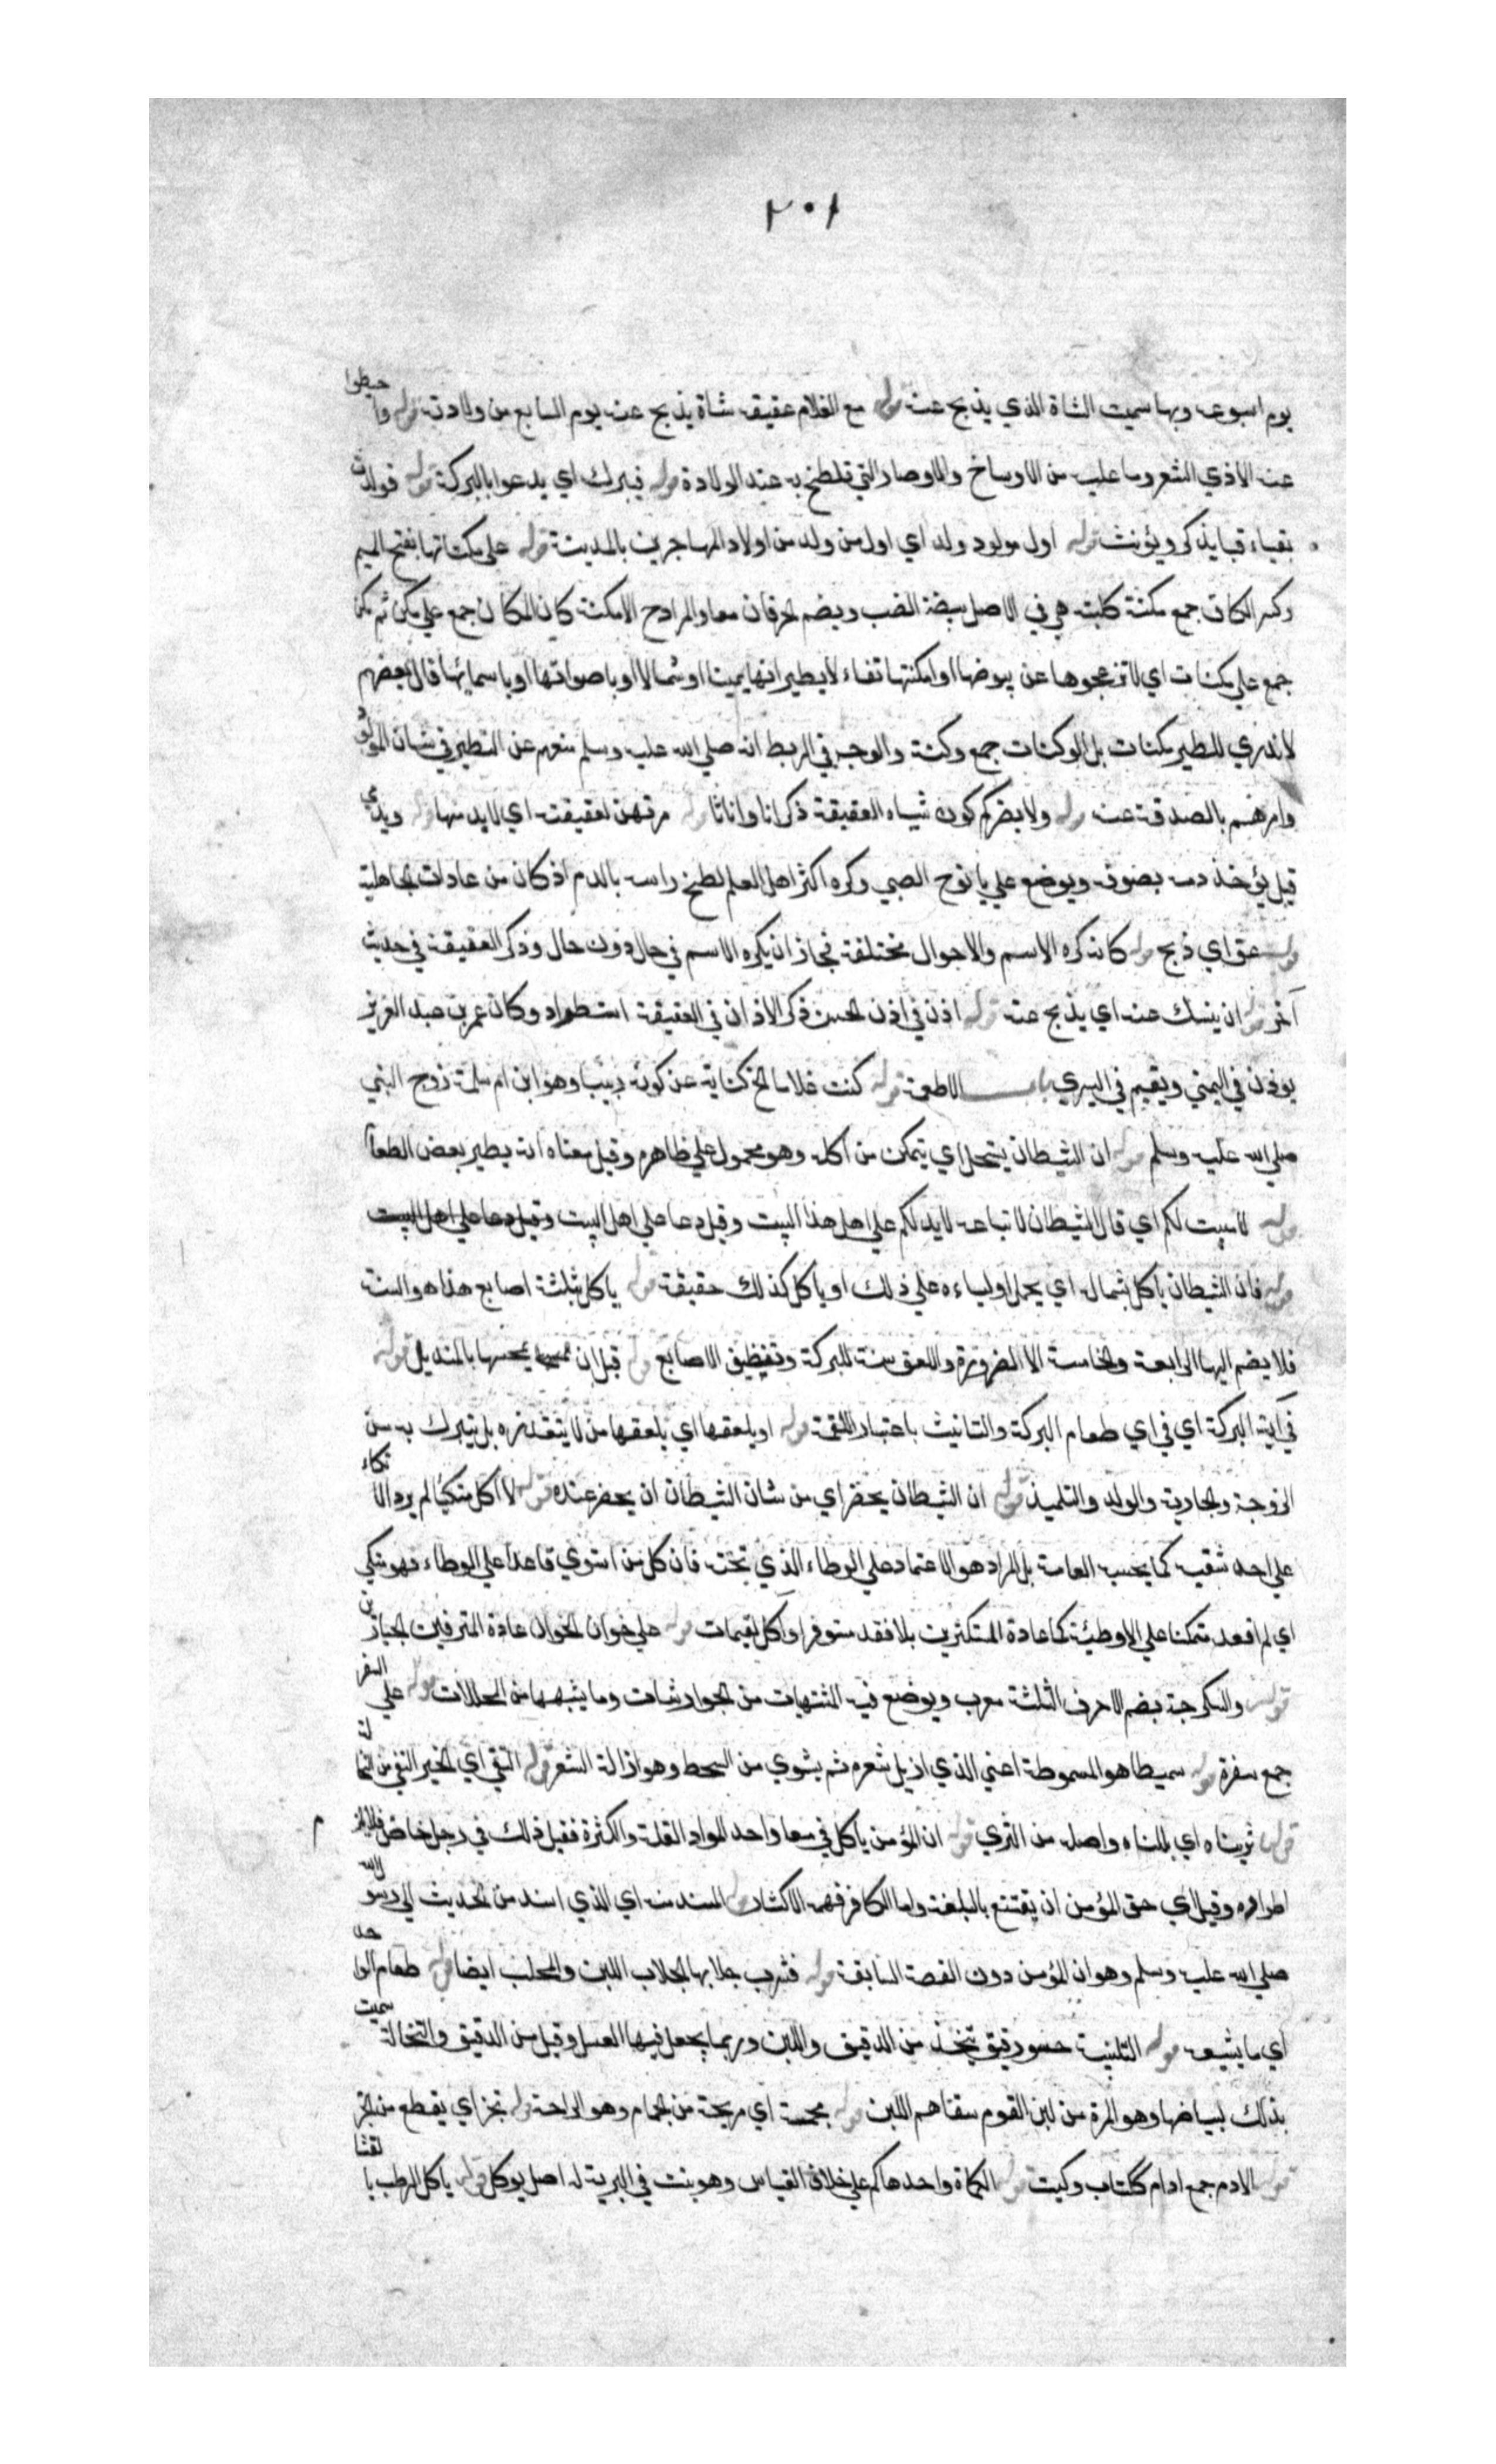 ٢٠١
يوم اسبوعه وبها سميت الشاة الذي يذبح عنه قوله مع الغلام عقيقة شاة يذبح عنه يوم السابع من ولادته قوله واحيطوا
عنه الاذي الشعر وما عليه من الاوساخ والاوصار التي تلطخ به عند الولادة قوله فيبرك اي يدعوا بالبركة قوله فولدت
بقباء قبا يذكر ويؤنث قوله اول مولود ولد اي اول من ولد من اولاد المهاجرين بالمدينة قوله على مكناتها بفتح الميم
وكسر الكاف جمع مكنة ككلمة هي في الاصل بيضة الضب ويضم الحرفان معا والمراد ح الامكنة كان المكان جمع علي مكن ثم مكن
جمع علي مكنات اي لا تزعجوها عن بيوضها او امكنتها تفاءلا بطيرانها يمينا او شمالا او باصواتها او باسمائها قال بعضهم
لا ندري للطير مكنات بل الوكنات جمع وكنة والوجه في الربط انه صلي الله عليه وسلم منعهم عن التطير في شان المولود
وامرهم بالصدقة عنه قوله ولا يضركم كون شياه العقيقة ذكرانا واناثا قوله مرتهن لعقيقته اي لابد منها قوله ويدمي
قيل يؤخذ دمه بصوف ويوضع علي يافوخ الصبي وكره اكثر اهل العلم لطخ راسه بالدم اذ كان من عادات الجاهلية
قوله عق اي ذبح قوله كانه كره الاسم والاحوال مختلفة فجاز ان يكره الاسم في حال دون حال وذكر العقيقة في حديث
آخر قوله ان ينسك عنه اي يذبح عنه قوله اذن في اذن الحسن ذكر الاذان في العقيقة استطراد وكان عمر بن عبد العزيز
يوذن في اليمني ويقيم في اليسري باب الاطعمة قوله كنت غلاما الخ كناية عن كونه ربيبا وهو ابن ام سلمة زوج النبي
صلي الله عليه وسلم قوله ان الشيطان يستحل اي يتمكن من اكله وهو محمول علي ظاهره وقيل معناه انه يطير بعض الطعام
قوله لا مبيت لكم اي قال الشيطان لاتباعه لا يد لكم علي اهل هذا البيت وقيل دعا علي اهل البيت وقيل دعا علي اهل البيت
قوله فان الشيطان ياكل بشماله اي يحمل اولياءه علي ذلك او ياكل كذلك حقيقة قوله ياكل بثلثة اصابع هذا هو السنة
فلا يضم اليها الرابعة والخامسة الا لضرورة واللعق سنة للبركة وتنظيف الاصابع قوله قبل ان يمسحها بالمنديل قوله
في اية البركة اي في اي طعام البركة والتانيث باعتبار اللقمة قوله او يلعقها اي يلعقها من لا يتقذره بل يتبرك به من
الزوجة والجارية والولد والتلميذ قوله ان الشيطان يحضر اي من شان الشيطان ان يحضر عنده قوله لا آكل متكيا لم يرد الاتكاء
علي احد شقيه كما يحسب العامة بل المراد هو الاعتماد علي الوطاء الذي تحته فان كل من استوي قاعدا علي الوطاء فهو متكي
اي لم اقعد متمكنا علي الاوطئة كما عادة المستكثرين بل اقعد مستوفزا وآكل لقيمات قوله علي خوان الخوان عادة المترفين الجبارين
قوله والسكرجة بضم الاحرف الثلثة معرب ويوضع فيه المشتهيات من الجوارشات وما يشبهها من المخللات قوله علي السفر
جمع سفرة قوله سميطا هو المسموطة اعني الذي ازيل شعره ثم يشوي من السمط وهو ازالة الشعر قوله النقي اي الخبز النقي من النخالة
قوله ثريناه اي بللناه واصله من الثري قوله ان المؤمن ياكل في معا واحد المراد القلة والكثرة فقيل ذلك في رجل خاص
اطراده وقيل اي حق المؤمن ان يقتنع بالبلغة واما الكافر فهمه الاكثار قوله المسند منه اي الذي اسند من الحديث الي رسول الله
صلي الله عليه وسلم وهو ان المؤمن دون القصة السابقة قوله فشرب حلابها الحلاب اللبن والمحلب ايضا قوله طعام الواحد
اي ما يشبعه قوله التلبينة حسو رقيق يتخذ من الدقيق واللبن وربما يجعل فيها العسل وقيل من الدقيق والنخالة سميت
بذلك لبياضها وهو المرة من لبن القوم سقاهم اللبن قوله مجمة اي مريحة من الجمام وهو الراحة قوله تجز اي يقطع من الجز
قوله الادم جمع ادام ككتاب وكتب قوله الكماة واحدها كم علي خلاف القياس وهو نبت في البرية له اصل يوكل قوله ياكل الرطب بالقثا